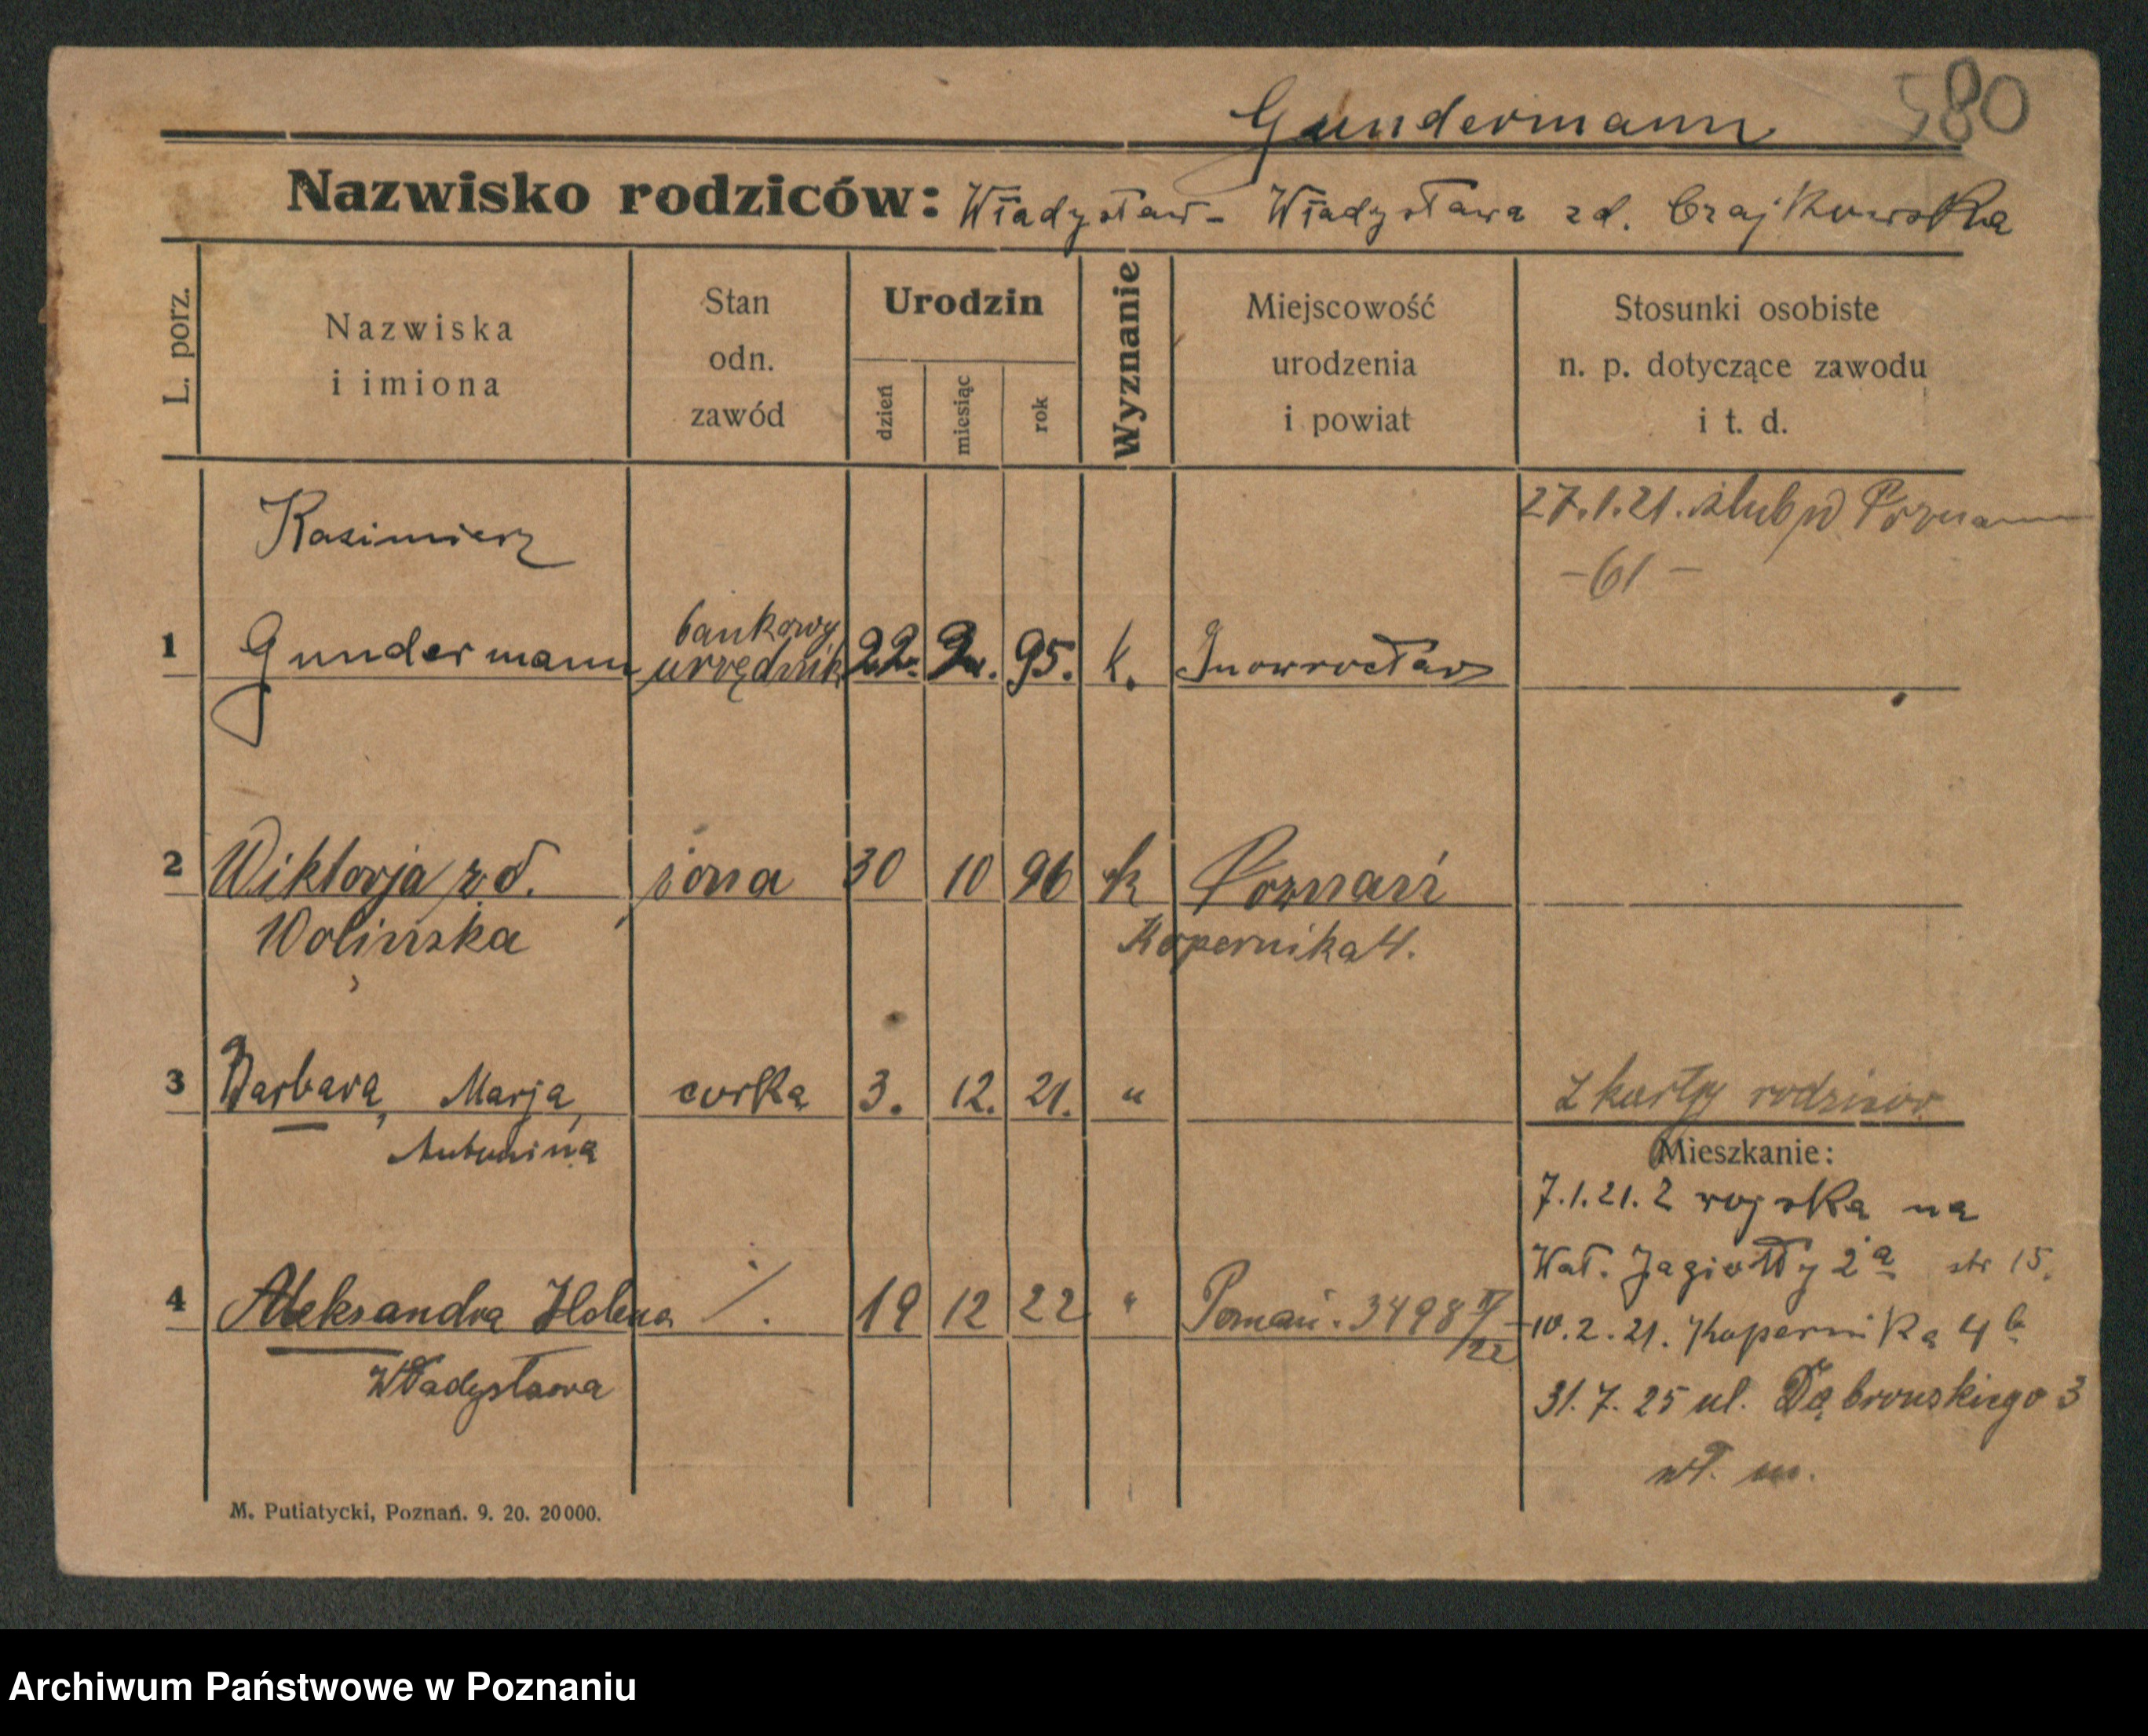 580
Gundermann
Nazwisko rodziców: Władysław - Władysława zd. Czajkowska
L. porz.
Nazwiska
i imiona
Stan
odn.
zawód
Urodzin
dzień
miesiąc
rok
Wyznanie
Miejscowość
urodzenia
i powiat
Stosunki osobiste
n. p. dotyczące zawodu
i t. d.
27.1.21. ślub w Poznaniu
- 61 -
Kasimierz
bankowy
1 Gundermann urzędnik 22. 2. 95. k. Inowrocław
2 Wiktorja z d. żona 30 10 96 k Poznań
Wolińska Kopernika 4.
3 Barbara, Marja, corka 3. 12. 21. " z karty rodziców
Antonina
Mieszkanie:
7.1.21. z wojska na
Wał. Jagiełły 2a str 15.
4 Aleksandra Helena /. 19 12 22 " Poznań. 3498 II/22
10.2.21. Kopernika 4b
Władysława
31.7.25 ul. Dąbrowskiego 3
wł. m.
M. Putiatycki, Poznań. 9. 20. 20000.
Archiwum Państwowe w Poznaniu